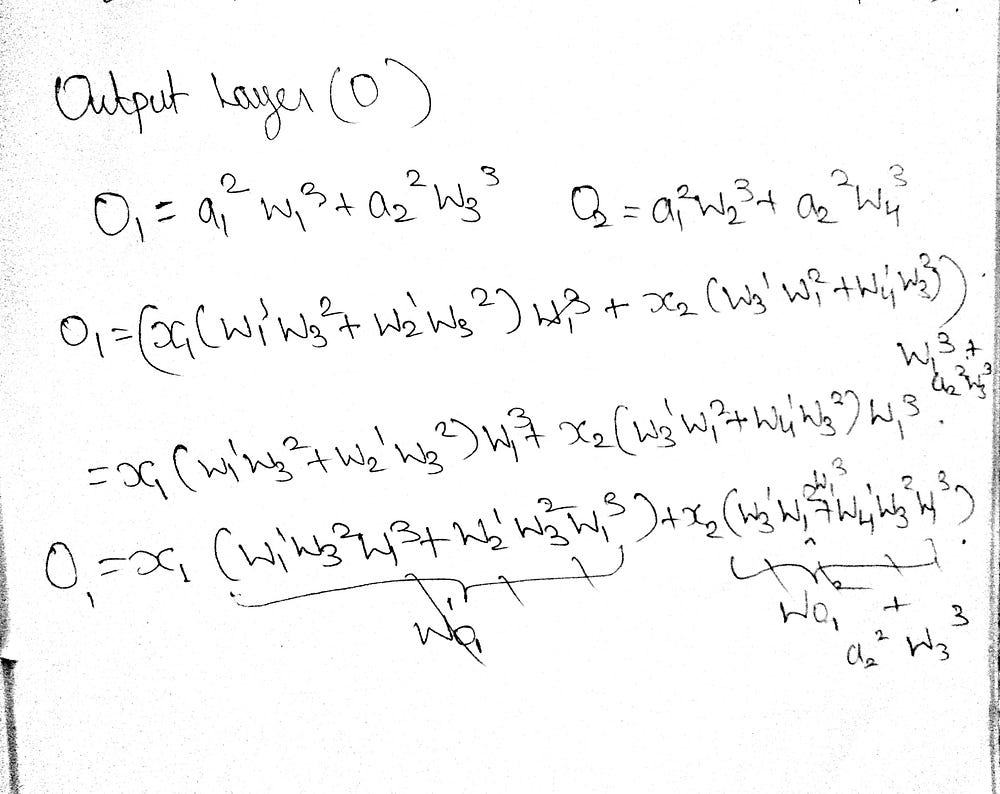 Output Layer (O)
O₁ = a₁² w₁³ + a₂² w₃³   O₂ = a₁² w₂³ + a₂² w₄³
O₁ = (x₁ (w₁¹ w₃² + w₂¹ w₃²) w₁³ + x₂ (w₃¹ w₁² + w₄¹ w₃²))
w₁³ +
a₂² w₃³
= x₁ (w₁¹ w₃² + w₂¹ w₃²) w₁³ + x₂ (w₃¹ w₁² + w₄¹ w₃²) w₁³
O₁ = x₁ (w₁¹ w₃² w₁³ + w₂¹ w₃² w₁³) + x₂ (w₃¹ w₁² w₁³ + w₄¹ w₃² w₁³)
W¹o₁   W²o₁ +
a₂² w₃³